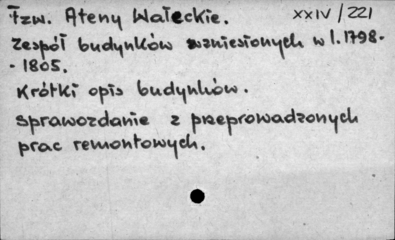 Tzw. Ateny Wałeckie. XXIV/221
Zespół budynków wzniesionych w l. 1798-
- 1805.
Krótki opis budynków.
Sprawozdanie z przeprowadzonych
prac remontowych.